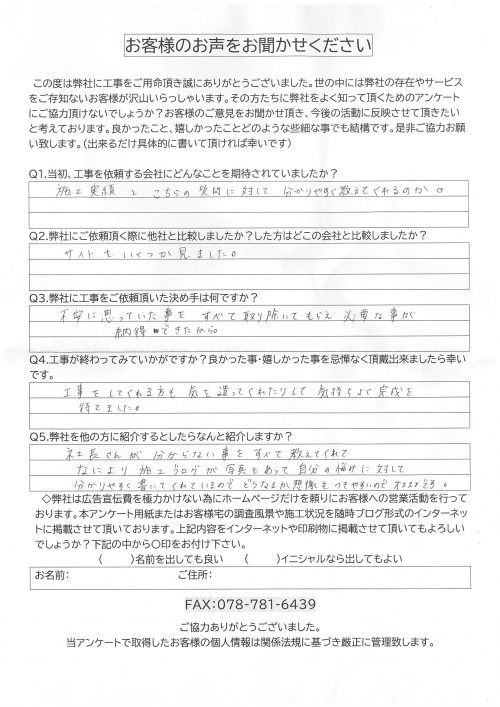 お客様のお声をお聞かせください
この度は弊社に工事をご用命頂き誠にありがとうございました。世の中には弊社の存在やサービス
をご存知ないお客様が沢山いらっしゃいます。その方たちに弊社をよく知って頂くためのアンケート
にご協力頂けないでしょうか？お客様のご意見をお聞かせ頂き、今後の活動に反映させて頂きたい
と考えております。良かったこと、嬉しかったことどのような些細な事でも結構です。是非ご協力お願
い致します。（出来るだけ具体的に書いて頂ければ幸いです）
Q1.当初、工事を依頼する会社にどんなことを期待されていましたか？
施工実績 と こちらの 質問に 対して 分かりやすく 教えてくれるのか。
Q2.弊社にご依頼頂く際に他社と比較しましたか？した方はどこの会社と比較しましたか？
サイトを いくつか 見ました。
Q3.弊社に工事をご依頼頂いた決め手は何ですか？
不安に思っていた事を すべて 取り除いてもらえ 必要な事が
納得 できたから。
Q4.工事が終わってみていかがですか？良かった事・嬉しかった事を忌憚なく頂戴出来ましたら幸い
です。
工事をしてくれる方も 気を遣ってくれたりして 気持ちよく 完成を
待てました。
Q5.弊社を他の方に紹介するとしたらなんと紹介しますか？
社長さんが 分からない事を すべて 教えてくれて
なにより 施工ブログが 写真もあって 自分の悩みに 対して
分かりやすく書いてくれているので どうなるか想像も つきやすいので オススメです。
◇弊社は広告宣伝費を極力かけない為にホームページだけを頼りにお客様への営業活動を行って
おります。本アンケート用紙またはお客様宅の調査風景や施工状況を随時ブログ形式のインターネッ
トに掲載させて頂いております。上記内容をインターネットや印刷物に掲載させて頂いてもよろしい
でしょうか？下記の中から○印をお付け下さい。
（　　）名前を出しても良い　（　　）イニシャルなら出してもよい
お名前：　　ご住所：
FAX：078-781-6439
ご協力ありがとうございました。
当アンケートで取得したお客様の個人情報は関係法規に基づき厳正に管理致します。